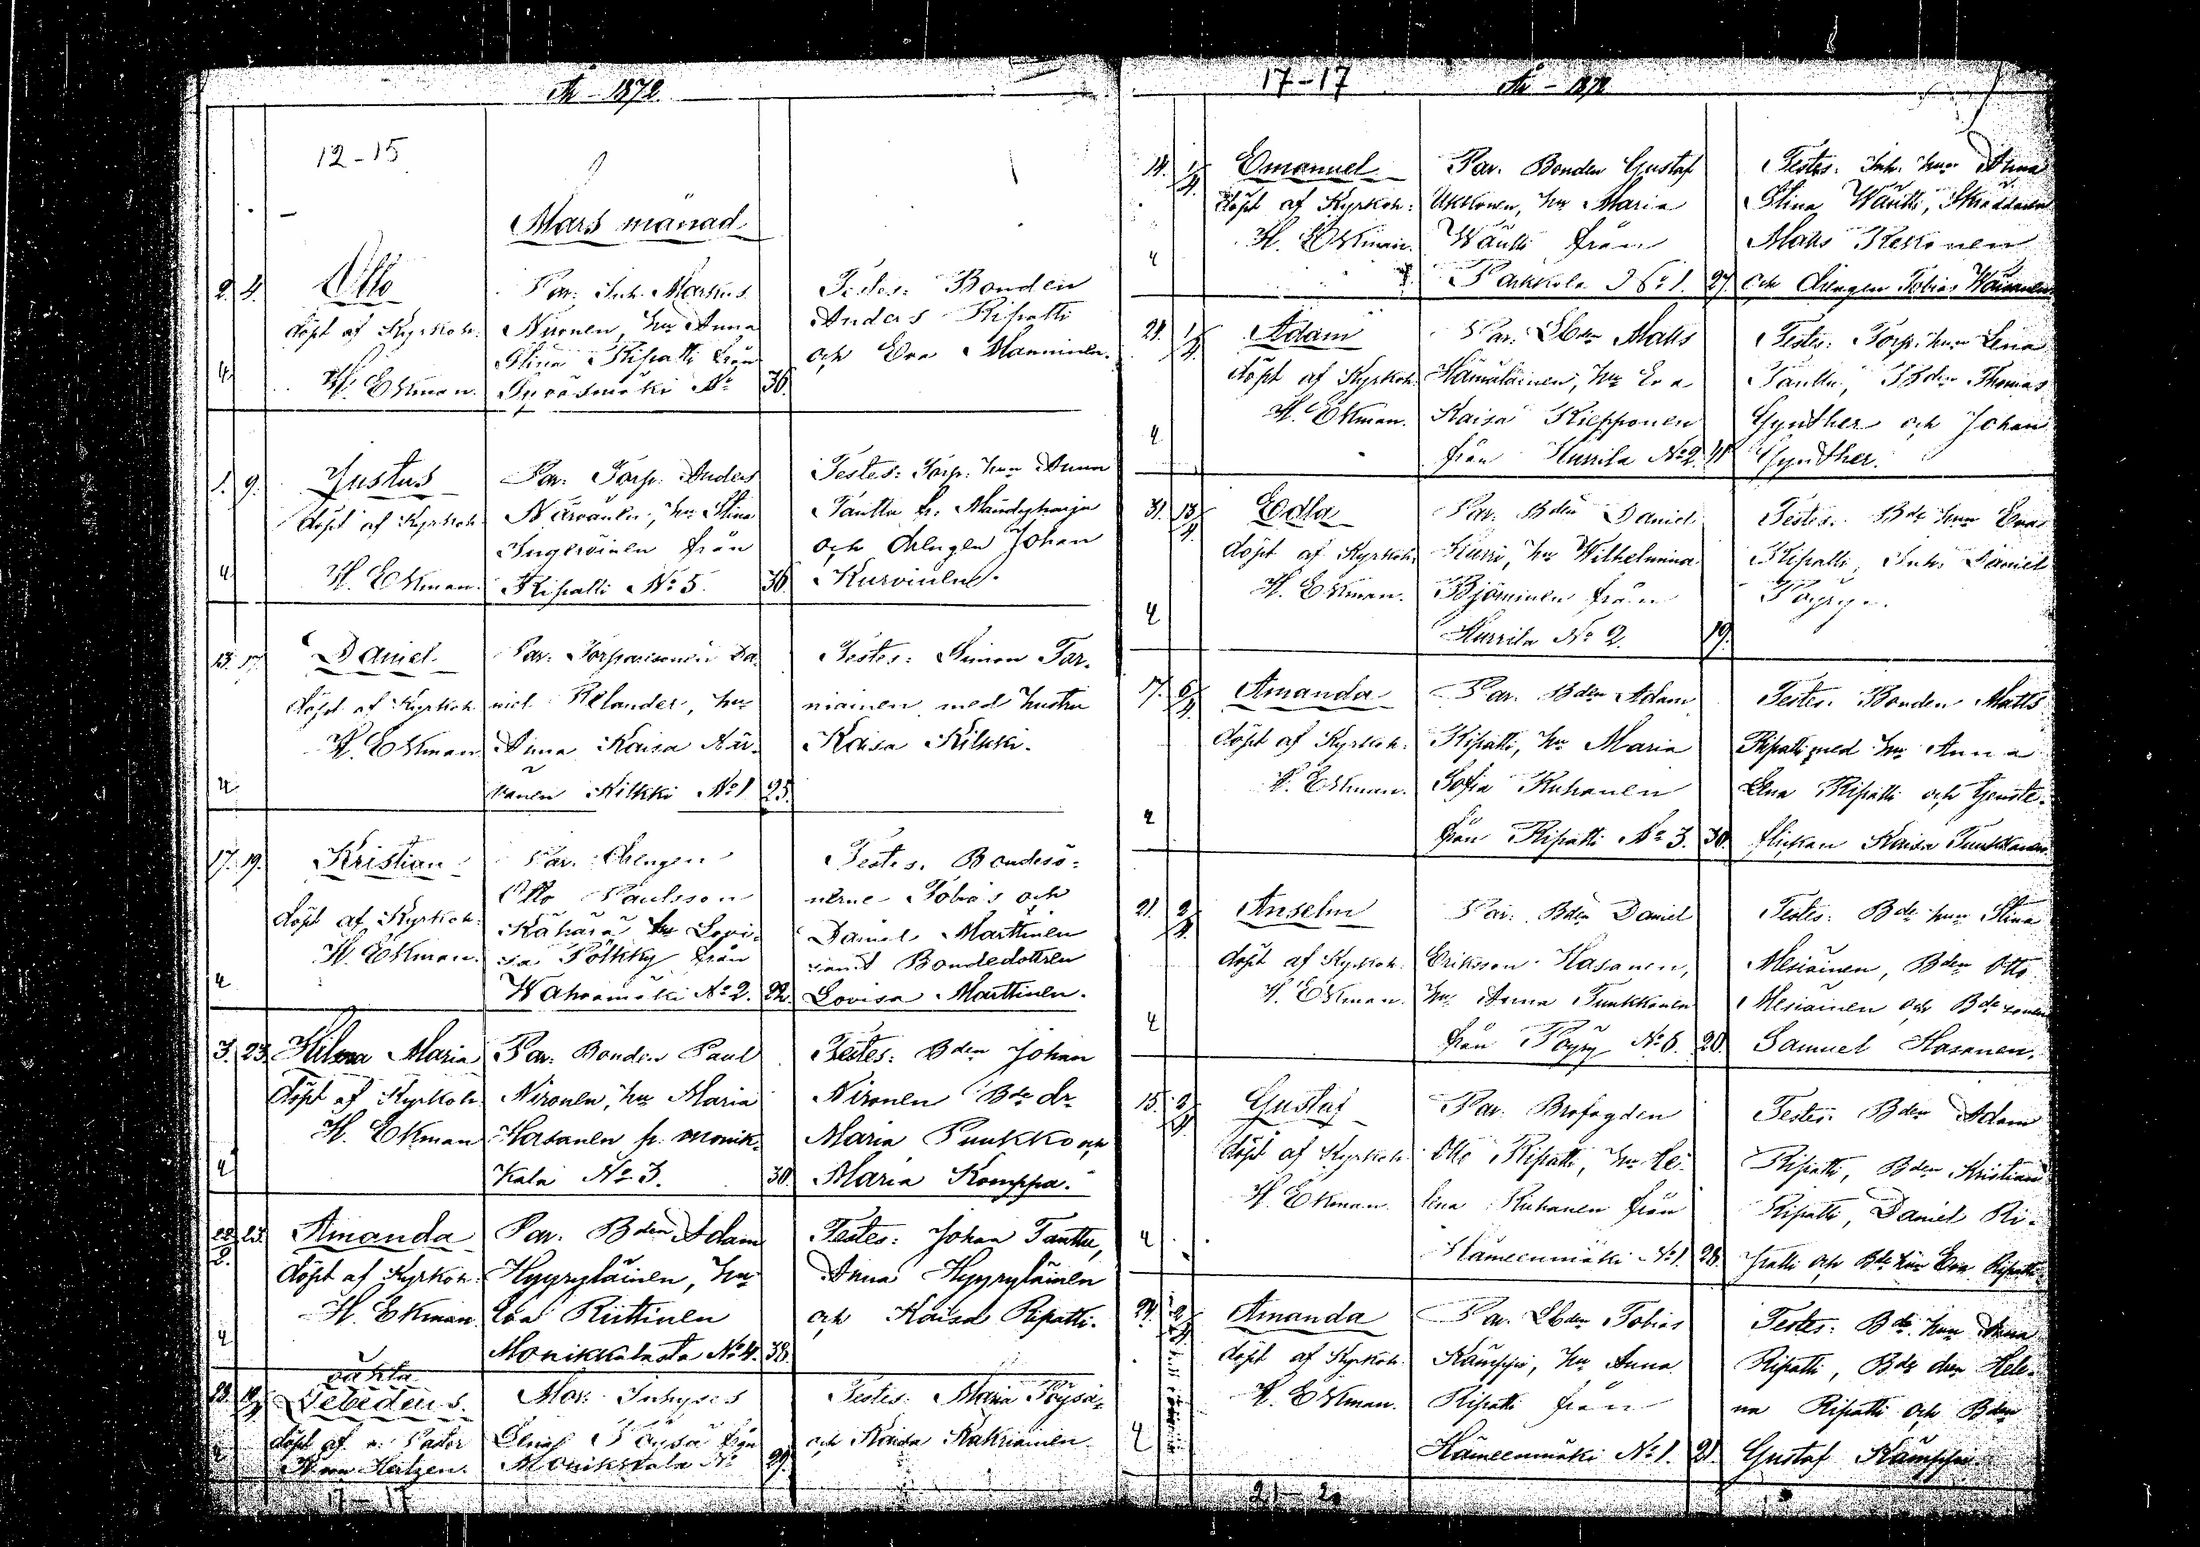 År 1872.
12-15
Mars månad
2. 4. Otto
döpt af Kyrkoh.
H. Ekman.
4
Par. Inh. Markus
Nironen, hu Anna
Stina Ripatti från
Pyräsmäki No 36.
Testes: Bonden
Anders Ripatti
och Eva Manninen.
1. 9. Justus
döpt af Kyrkoh
H. Ekman.
4
Par. Torp. Anders
Närvänen, hu Stina
Ingeroinen från
Ripatti No 5. 36.
Testes: Torp. hun Anna
Tanttu fr. Mäntyharju
och drengen Johan
Kurvinen.
13. 17. Daniel
döpt af Kyrkoh
H. Ekman
4
Par. Torparesonen Da-
niel Relander, hu
Anna Kaisa När-
vänen Kilkki No 1 25.
Testes: Simon Tar-
niainen med hustru
Kaisa Kilkki.
17. 19. Kristian
döpt af Kyrkoh.
H. Ekman.
4
Par. drengen
Otto Paulsson
Kähärä hu Lovi-
sa Pölkky från
Wahvamäki No 2. 22.
Testes. Bondesö-
nerne Tobias och
Daniel Marttinen
samt Bondedottren
Lovisa Marttinen.
3. 23. Hilma Maria
döpt af Kyrkoh
H. Ekman
4
Par. Bonden Paul
Nironen, hu Maria
Hasanen fr. Monik-
kala No 3. 30.
Testes: Bden Johan
Nironen Bde dr.
Maria Punkko och
Maria Komppa.
28/2. 25. Amanda
döpt af Kyrkoh.
H. Ekman
4
Par. Bden Adam
Hyyryläinen, hu
Eva Riittinen
Monikkalasta No 4. 38.
Testes: Johan Tanttu,
Anna Hyyryläinen
och Kaisa Ripatti.
oäkta
23. Zebedeus.
döpt af v. Pastor
von Hertzen.
Mor. Inhyses
Pöysä från
Monikkala No 29.
Testes: Maria Pöysä
och Kaisa Kakriainen.
17-17
17-17
År - 1872
14. 1/4 Emanuel
döpt af Kyrkoh:
H. Ekman.
4
Par. Bonden Gustaf
Ukkonen, hu Maria
Wäntti från
Parkkola No 1. 27.
Testes: Inh. hun Anna
Stina Wäntti, Skräddaren
Matts Keskonen
och drengen Tobias Wäisänen
21. 1/4 Adam
döpt af Kyrkoh.
H. Ekman.
4
Par. Lbden Matts
Hämäläinen, hu Eva
Kaisa Kiepponen
från Hurrila No 2.
Testes: Torp. hun Lena
Tanttu, Bden Thomas
Gynther och Johan
Gynther.
31. 13/4 Edla
döpt af Kyrkoh.
H. Ekman.
4
Par. Bden Daniel
Kurri, hu Wilhelmina
Björninen från
Hurrila No 2. 19.
Testes: Bde hun Eva
Ripatti, Inh. Daniel
Pöyry.
17. 6/4 Amanda
döpt af Kyrkoh.
H. Ekman.
4
Par. Bden Adam
Ripatti, hu Maria
Sofia Kuhanen
från Ripatti No 3. 30.
Testes. Bonden Matts
Ripatti med hu Anna
Lena Ripatti och tjenste-
flickan Kaisa Punkkanen
21. 2/4 Anselm
döpt af Kyrkoh.
H. Ekman.
4
Par. Bden Daniel
Eriksson Hasanen,
hu Anna Punkkonen
från Pöyry No 6. 20.
Testes: Bde hun Stina
Mesiäinen, Bden Otto
Mesiäinen och Bde sonen
Samuel Hasanen.
15. 2/4 Gustaf
döpt af Kyrkoh
H. Ekman.
4
Par. Brofogden
Otto Ripatti, hu He-
lena Kuhanen från
Hämeenmäki No 1. 28.
Testes. Bden Adam
Ripatti, Bden Kristian
Ripatti, Daniel Ri-
patti och Bde hun Eva Ripatti
24. 2/4 Amanda
döpt af Kyrkoh.
H. Ekman.
4
Par. Lbden Tobias
Kämppi, hu Anna
Ripatti från
Hämeenmäki No 1. 21.
Testes: Bde hun Anna
Ripatti, Bde dren Hele-
na Ripatti och Bden
Gustaf Kämppi.